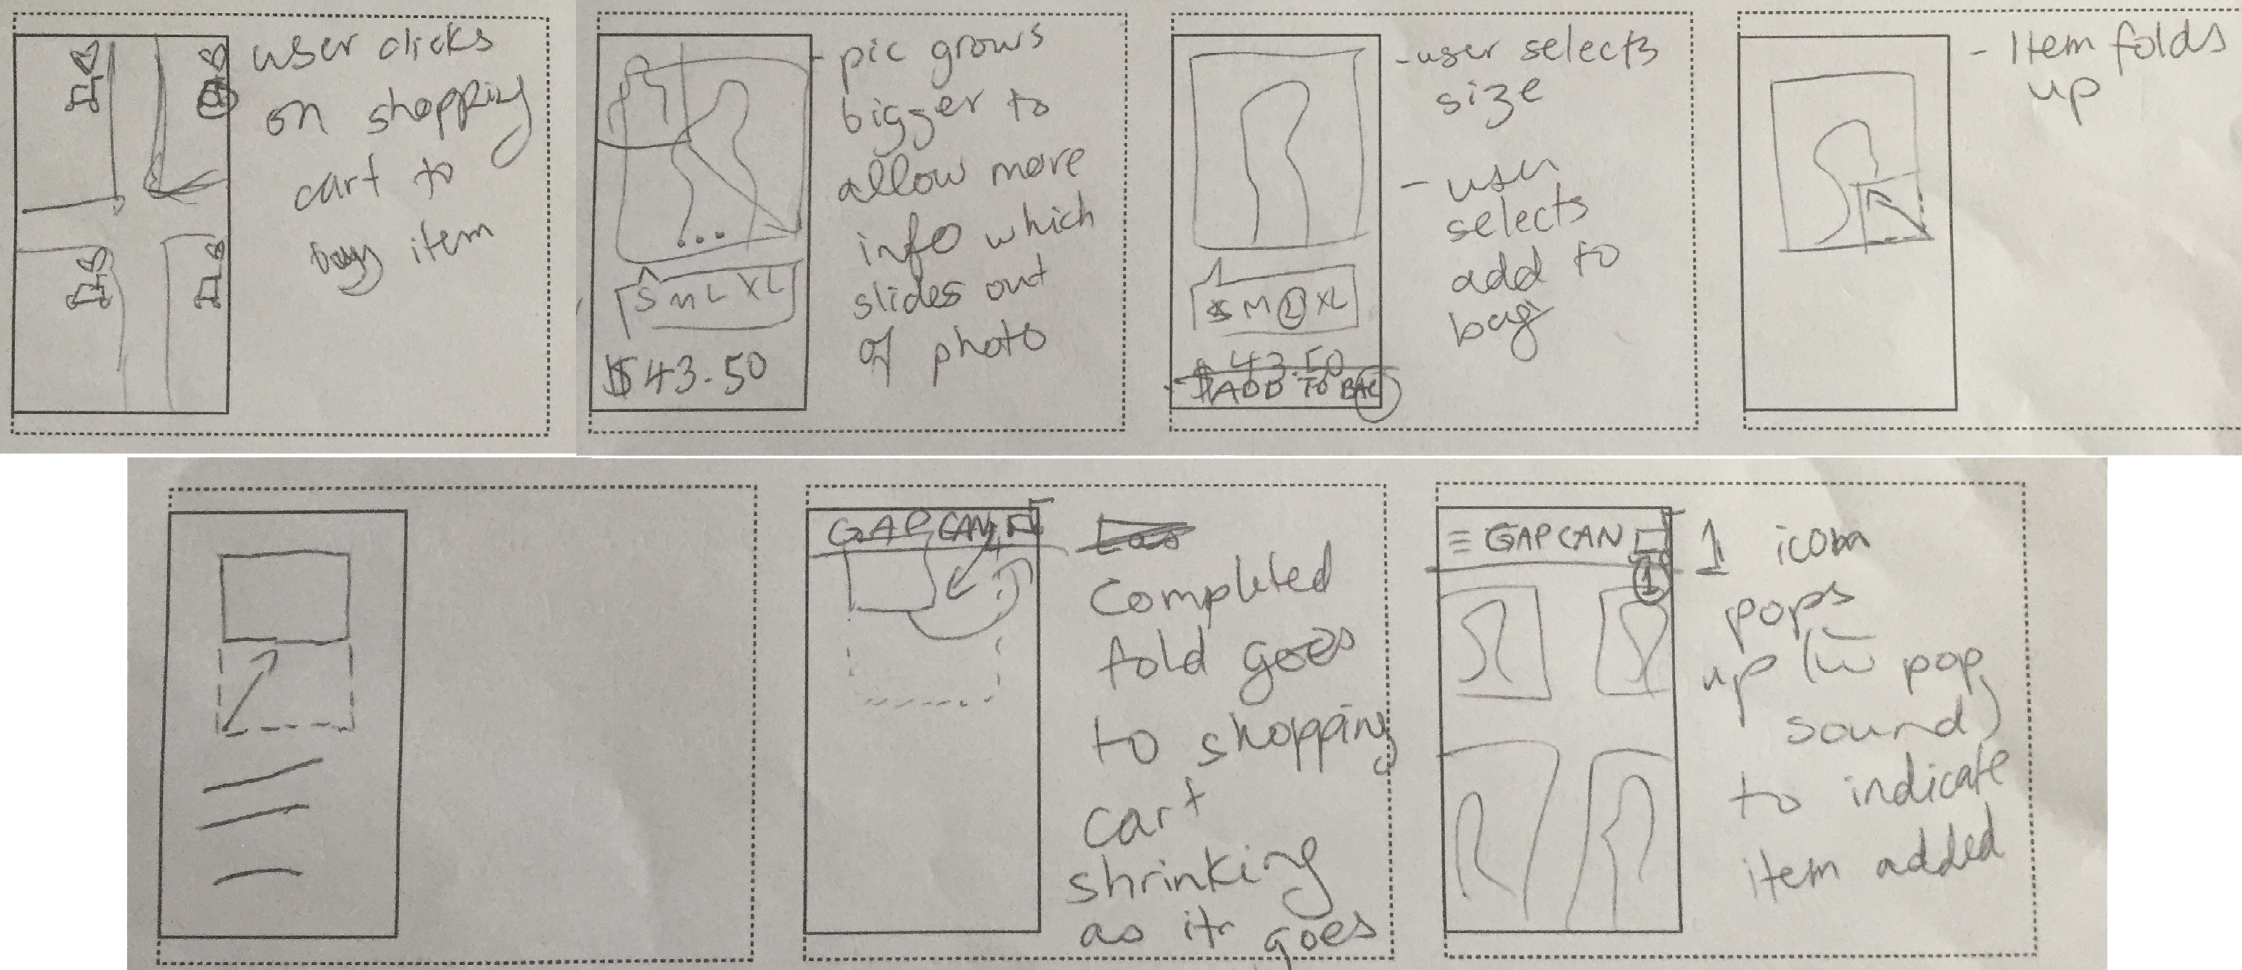 user clicks
on shopping
cart to
buy item
S M L XL
$43.50
- pic grows
bigger to
allow more
info which
slides out
of photo
S M L XL
$43.50
ADD TO BAG
- user selects
size
- user
selects
add to
bag
- Item folds
up
GAP CAN
Completed
fold goes
to shopping
cart
shrinking
as it goes
GAP CAN
1
1 icon
pops
up (w pop
sound)
to indicate
item added